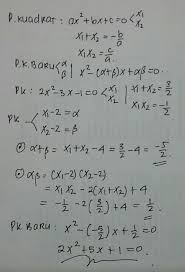 P.Kuadrat: ax²+bx+c=0 < x₁ x₂
x₁+x₂ = -b/a
x₁x₂ = c/a
P.K. BARU < α β | x²-(α+β)x+αβ=0
PK: 2x²-3x-1=0 < x₁ x₂ | x₁+x₂=3/2 x₁x₂=-1/2
PK < x₁-2=α x₂-2=β
• α+β = x₁+x₂-4 = 3/2-4 = -5/2
• αβ = (x₁-2)(x₂-2)
= x₁x₂ -2(x₁+x₂)+4
= -1/2 -2(3/2)+4 = 1/2
PK. BARU: x²-(-5/2)x+1/2=0
2x²+5x+1=0